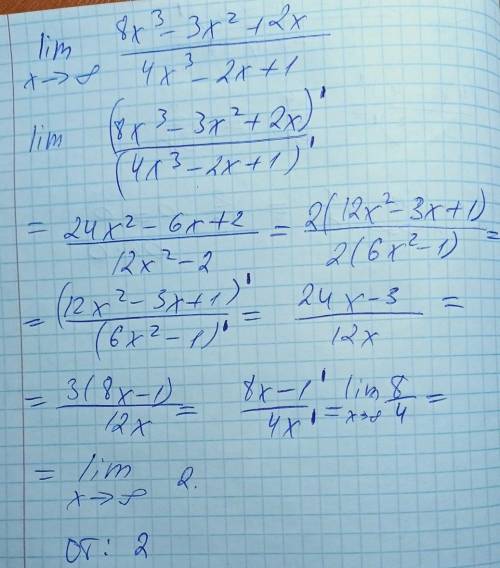 lim x→∞ (8x³ - 3x² + 2x) / (4x³ - 2x + 1)
lim (8x³ - 3x² + 2x)' / (4x³ - 2x + 1)'
= (24x² - 6x + 2) / (12x² - 2) = 2(12x² - 3x + 1) / 2(6x² - 1) =
= (12x² - 3x + 1)' / (6x² - 1)' = (24x - 3) / 12x =
= 3(8x - 1) / 12x = (8x - 1)' / 4x' = lim x→∞ 8/4 =
= lim x→∞ 2.
ОТ: 2